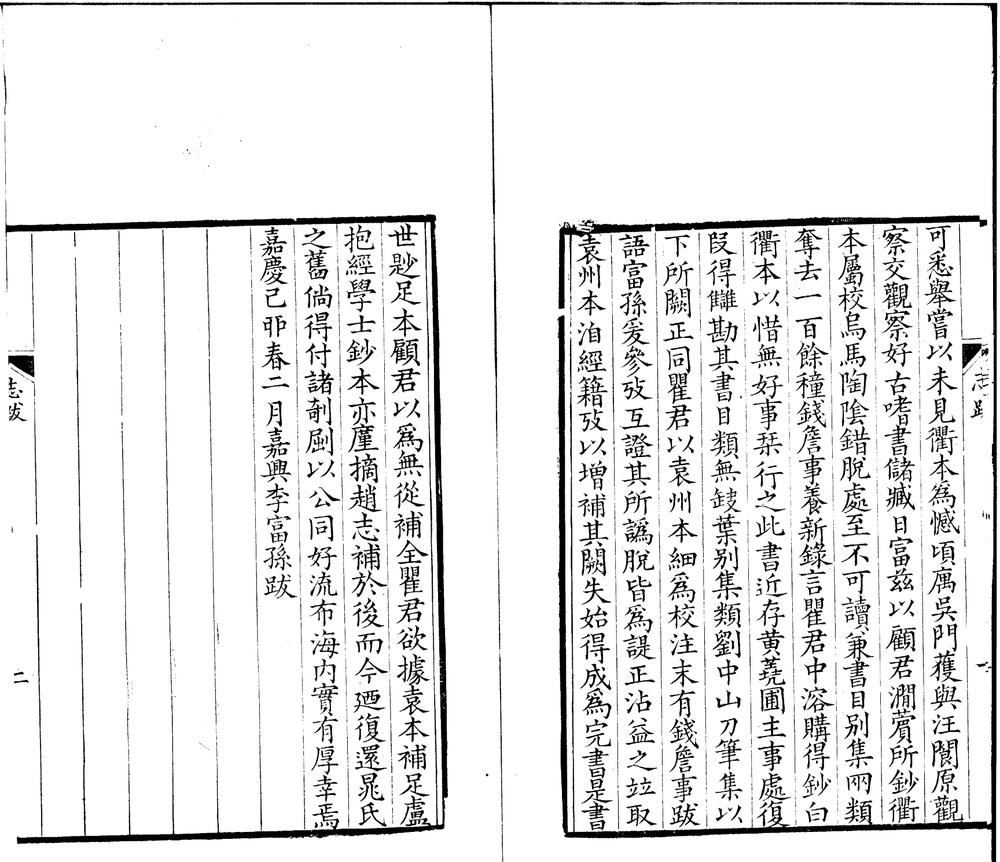 可悉舉嘗以未見衢本爲憾頃寓吳門獲與汪閬原觀
察交觀察好古嗜書儲臧日富兹以顧君澗薲所鈔衢
本屬校烏馬陶陰錯脫處至不可讀兼書目别集兩類
奪去一百餘種錢詹事養新錄言瞿君中溶購得鈔白
衢本以惜無好事栞行之此書近存黄蕘圃主事處復
叚得讎勘其書目類無𡙇葉别集類劉中山刀筆集以
下所闕正同瞿君以袁州本細爲校注末有錢詹事跋
語富孫爰參攷互證其所譌脫皆爲諟正沾益之竝取
袁州本洎經籍攷以增補其闕失始得成爲完書是書
志跋
世尟足本顧君以爲無從補全瞿君欲據袁本補足盧
抱經學士鈔本亦廑摘趙志補於後而今廼復還鼂氏
之舊倘得付諸剞劂以公同好流布海内實有厚幸焉
嘉慶己夘春二月嘉興李富孫跋
志跋
二